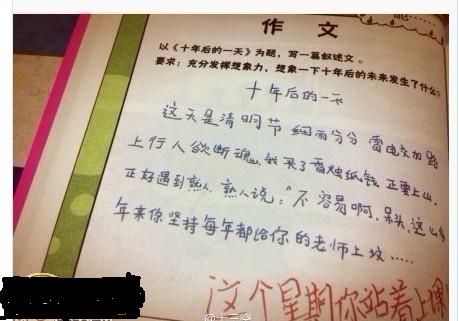 作文
以《十年后的一天》为题，写一篇叙述文。
要求：充分发挥想象力，想象一下十年后的未来发生了什么？
十年后的一天
这天是清明节 细雨分分 雷电交加 路
上行人欲断魂，我买了香烛纸钱 正要上山。
正好遇到熟人，熟人说：“不容易啊，呆头，这么多
年来你坚持每年都给你的老师上坟……
这个星期你站着上课